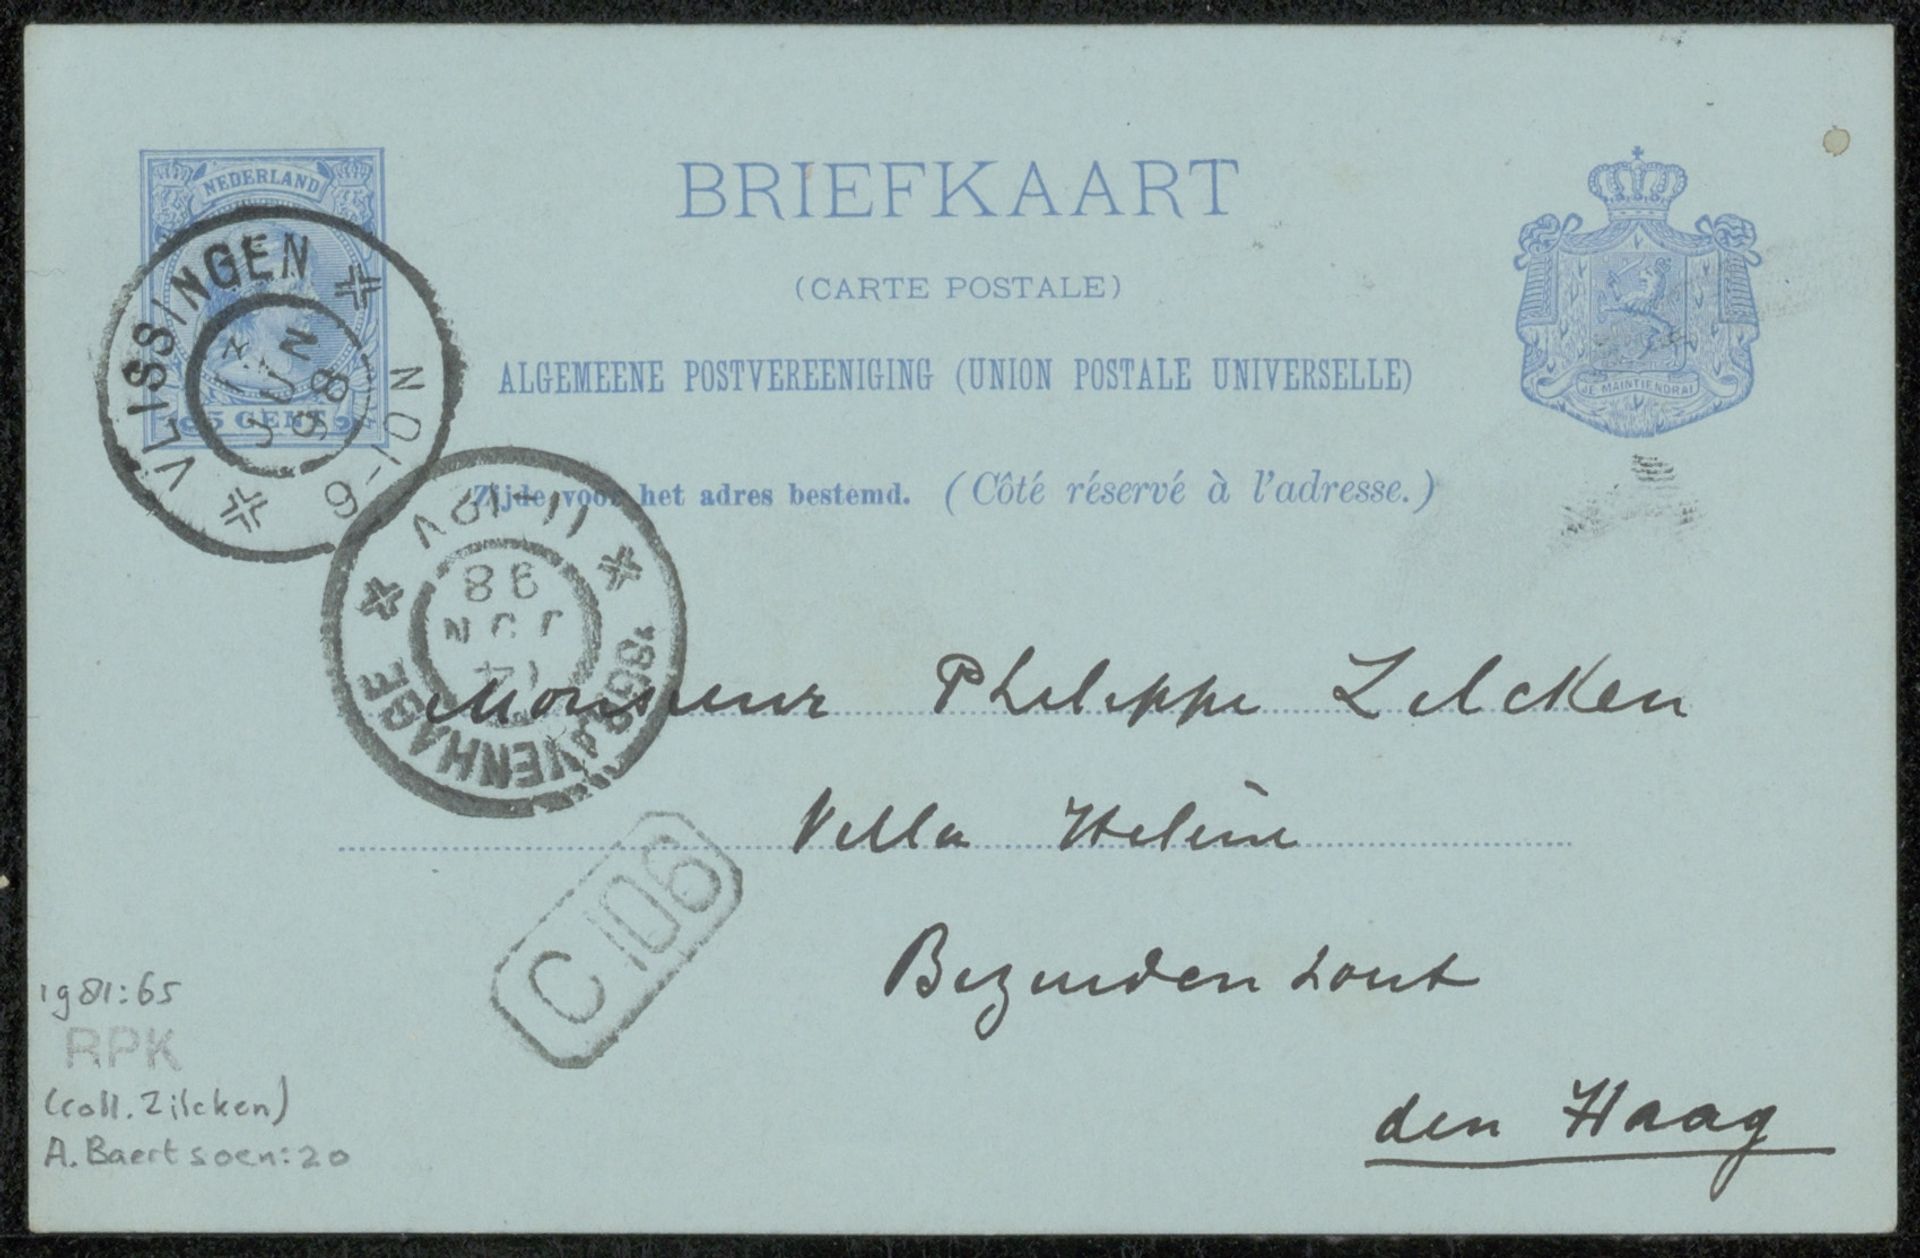 NEDERLAND
5 CENT
BRIEFKAART
(CARTE POSTALE)
ALGEMEENE POSTVEREENIGING (UNION POSTALE UNIVERSELLE)
Zijde voor het adres bestemd. (Côté réservé à l'adresse.)
JE MAINTIENDRAI
VLISSINGEN
JUN
98
9-10N
11-12V
98
JUN
14
'S GRAVENHAGE
Monsieur Philippe Zilcken
Villa Hélène
Bezuidenhout
den Haag
C 106
1981:65
RPK
(coll. Zilcken)
A. Baertsoen: 20